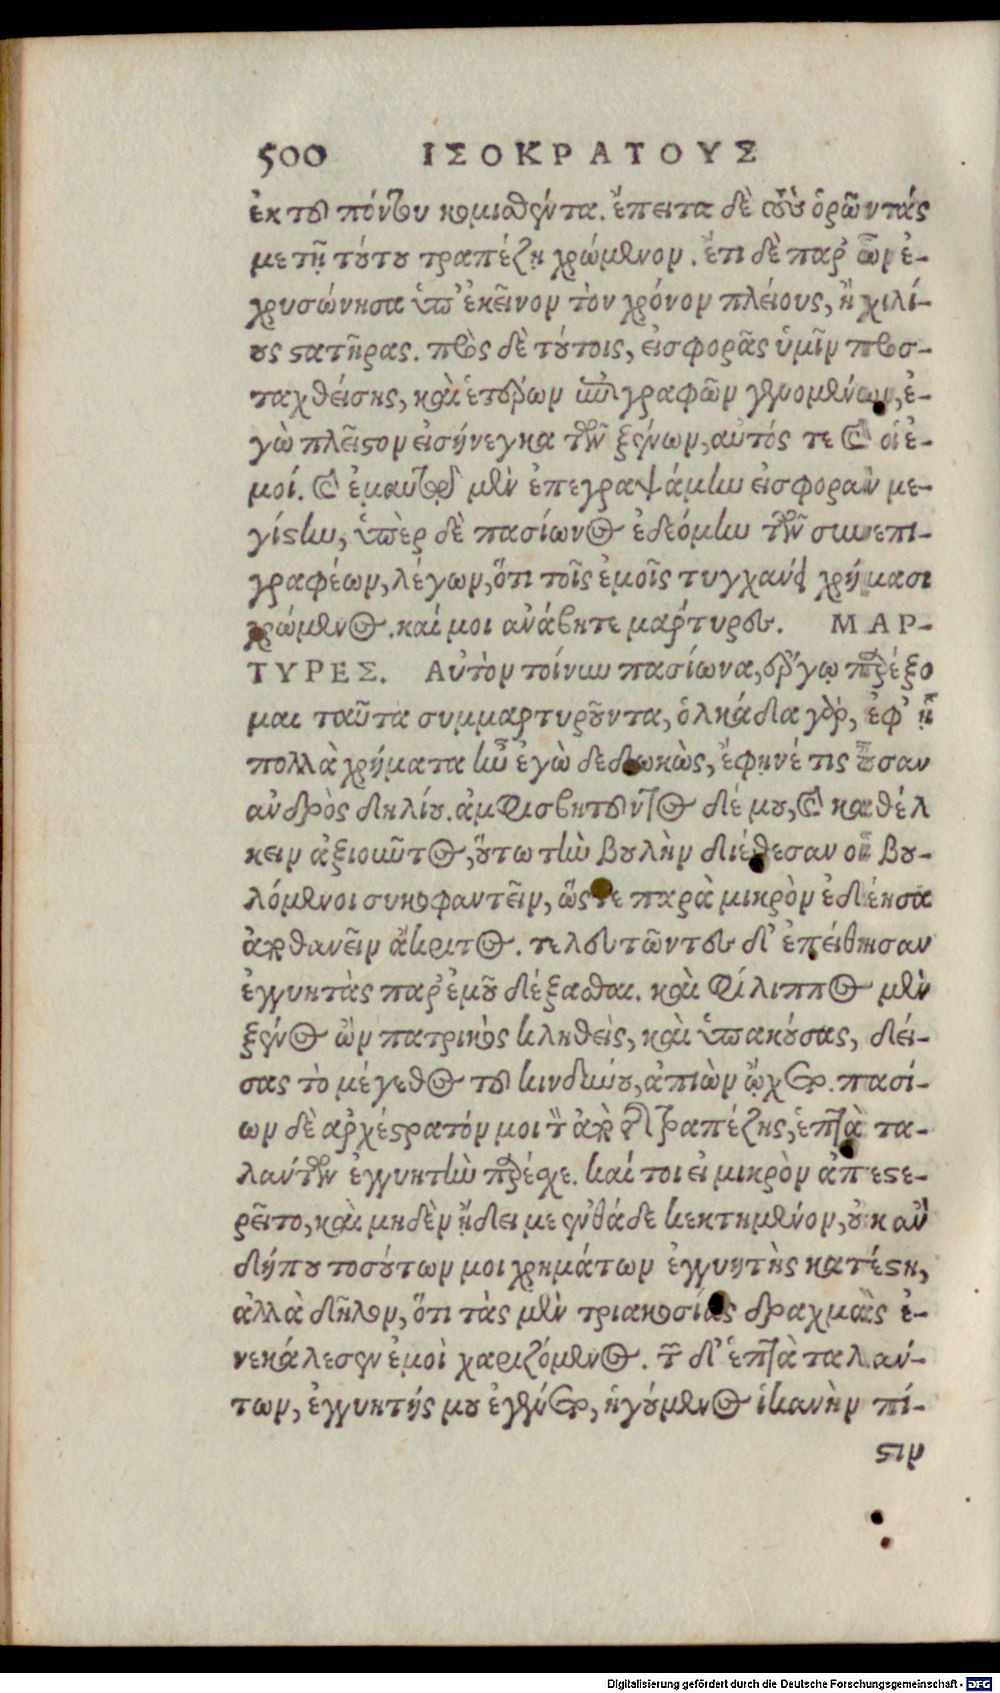 500 ΙΣΟΚΡΑΤΟΥΣ
ἐκ τοῦ πόντου κομισθέντα. ἔπειτα δὲ τοὺς ὁρῶντάς
με τῇ τούτου τραπέζῃ χρώμενον. ἔτι δὲ παρ' ὧν ἐ-
χρυσώνησα ὑπ' ἐκεῖνον τὸν χρόνον πλείους, ἢ χιλί-
ους στατῆρας. πρὸς δὲ τούτοις, εἰσφορᾶς ὑμῖν προσ-
ταχθείσης, καὶ ἑτέρων ἐπιγραφῶν γενομένων, ἐ-
γὼ πλεῖστον εἰσήνεγκα τῶν ξένων, αὐτός τε καὶ οἱ ἐ-
μοί. καὶ ἐμαυτῷ μὲν ἐπεγραψάμην εἰσφορὰν με-
γίστην, ὑπὲρ δὲ πασίωνος ἐδεόμην τῶν συνεπι-
γραφέων, λέγων, ὅτι τοῖς ἐμοῖς τυγχάνει χρήμασι
χρώμενος. καί μοι ἀνάβητε μάρτυρες. ΜΑΡ-
ΤΥΡΕΣ. Αὐτὸν τοίνυν πασίωνα, ἔργῳ παρέξο
μαι ταῦτα συμμαρτυροῦντα, ὁλκάδα γὰρ, ἐφ' ᾗ
πολλὰ χρήματα ἦν ἐγὼ δεδωκὼς, ἔφηνέ τις οὖσαν
ἀνδρὸς δηλίου. ἀμφισβητοῦντος δέ μου, καὶ καθέλ
κειν ἀξιοῦντος, οὕτω τὴν βουλὴν διέθεσαν οἱ βου-
λόμενοι συκοφαντεῖν, ὥστε παρὰ μικρὸν ἐδέησα
ἀποθανεῖν ἄκριτος. τελευτῶντες δ' ἐπείσθησαν
ἐγγυητὰς παρ' ἐμοῦ δέξασθαι. καὶ Φίλιππος μὲν
ξένος ὢν πατρικὸς κληθεὶς, καὶ ὑπακούσας, δεί-
σας τὸ μέγεθος τοῦ κινδύνου, ἀπιὼν ᾤχετο. πασί-
ων δὲ ἀρχέστρατόν μοι τὸν ἀπὸ τῆς τραπέζης, ἑπτὰ τα-
λάντων ἐγγυητὴν παρέσχε. καί τοι εἰ μικρὸν ἀπεστε-
ρεῖτο, καὶ μηδὲν ᾔδει με ἐνθάδε κεκτημένον, οὐκ ἂν
δήπου τοσούτων μοι χρημάτων ἐγγυητὴς κατέστη,
ἀλλὰ δῆλον, ὅτι τὰς μὲν τριακοσίας δραχμὰς ἐ-
νεκάλεσεν ἐμοὶ χαριζόμενος. τῶν δ' ἑπτὰ ταλάν-
των, ἐγγυητής μου ἐγένετο, ἡγούμενος ἱκανὴν πί-
στιν
Digitalisierung gefördert durch die Deutsche Forschungsgemeinschaft - DFG